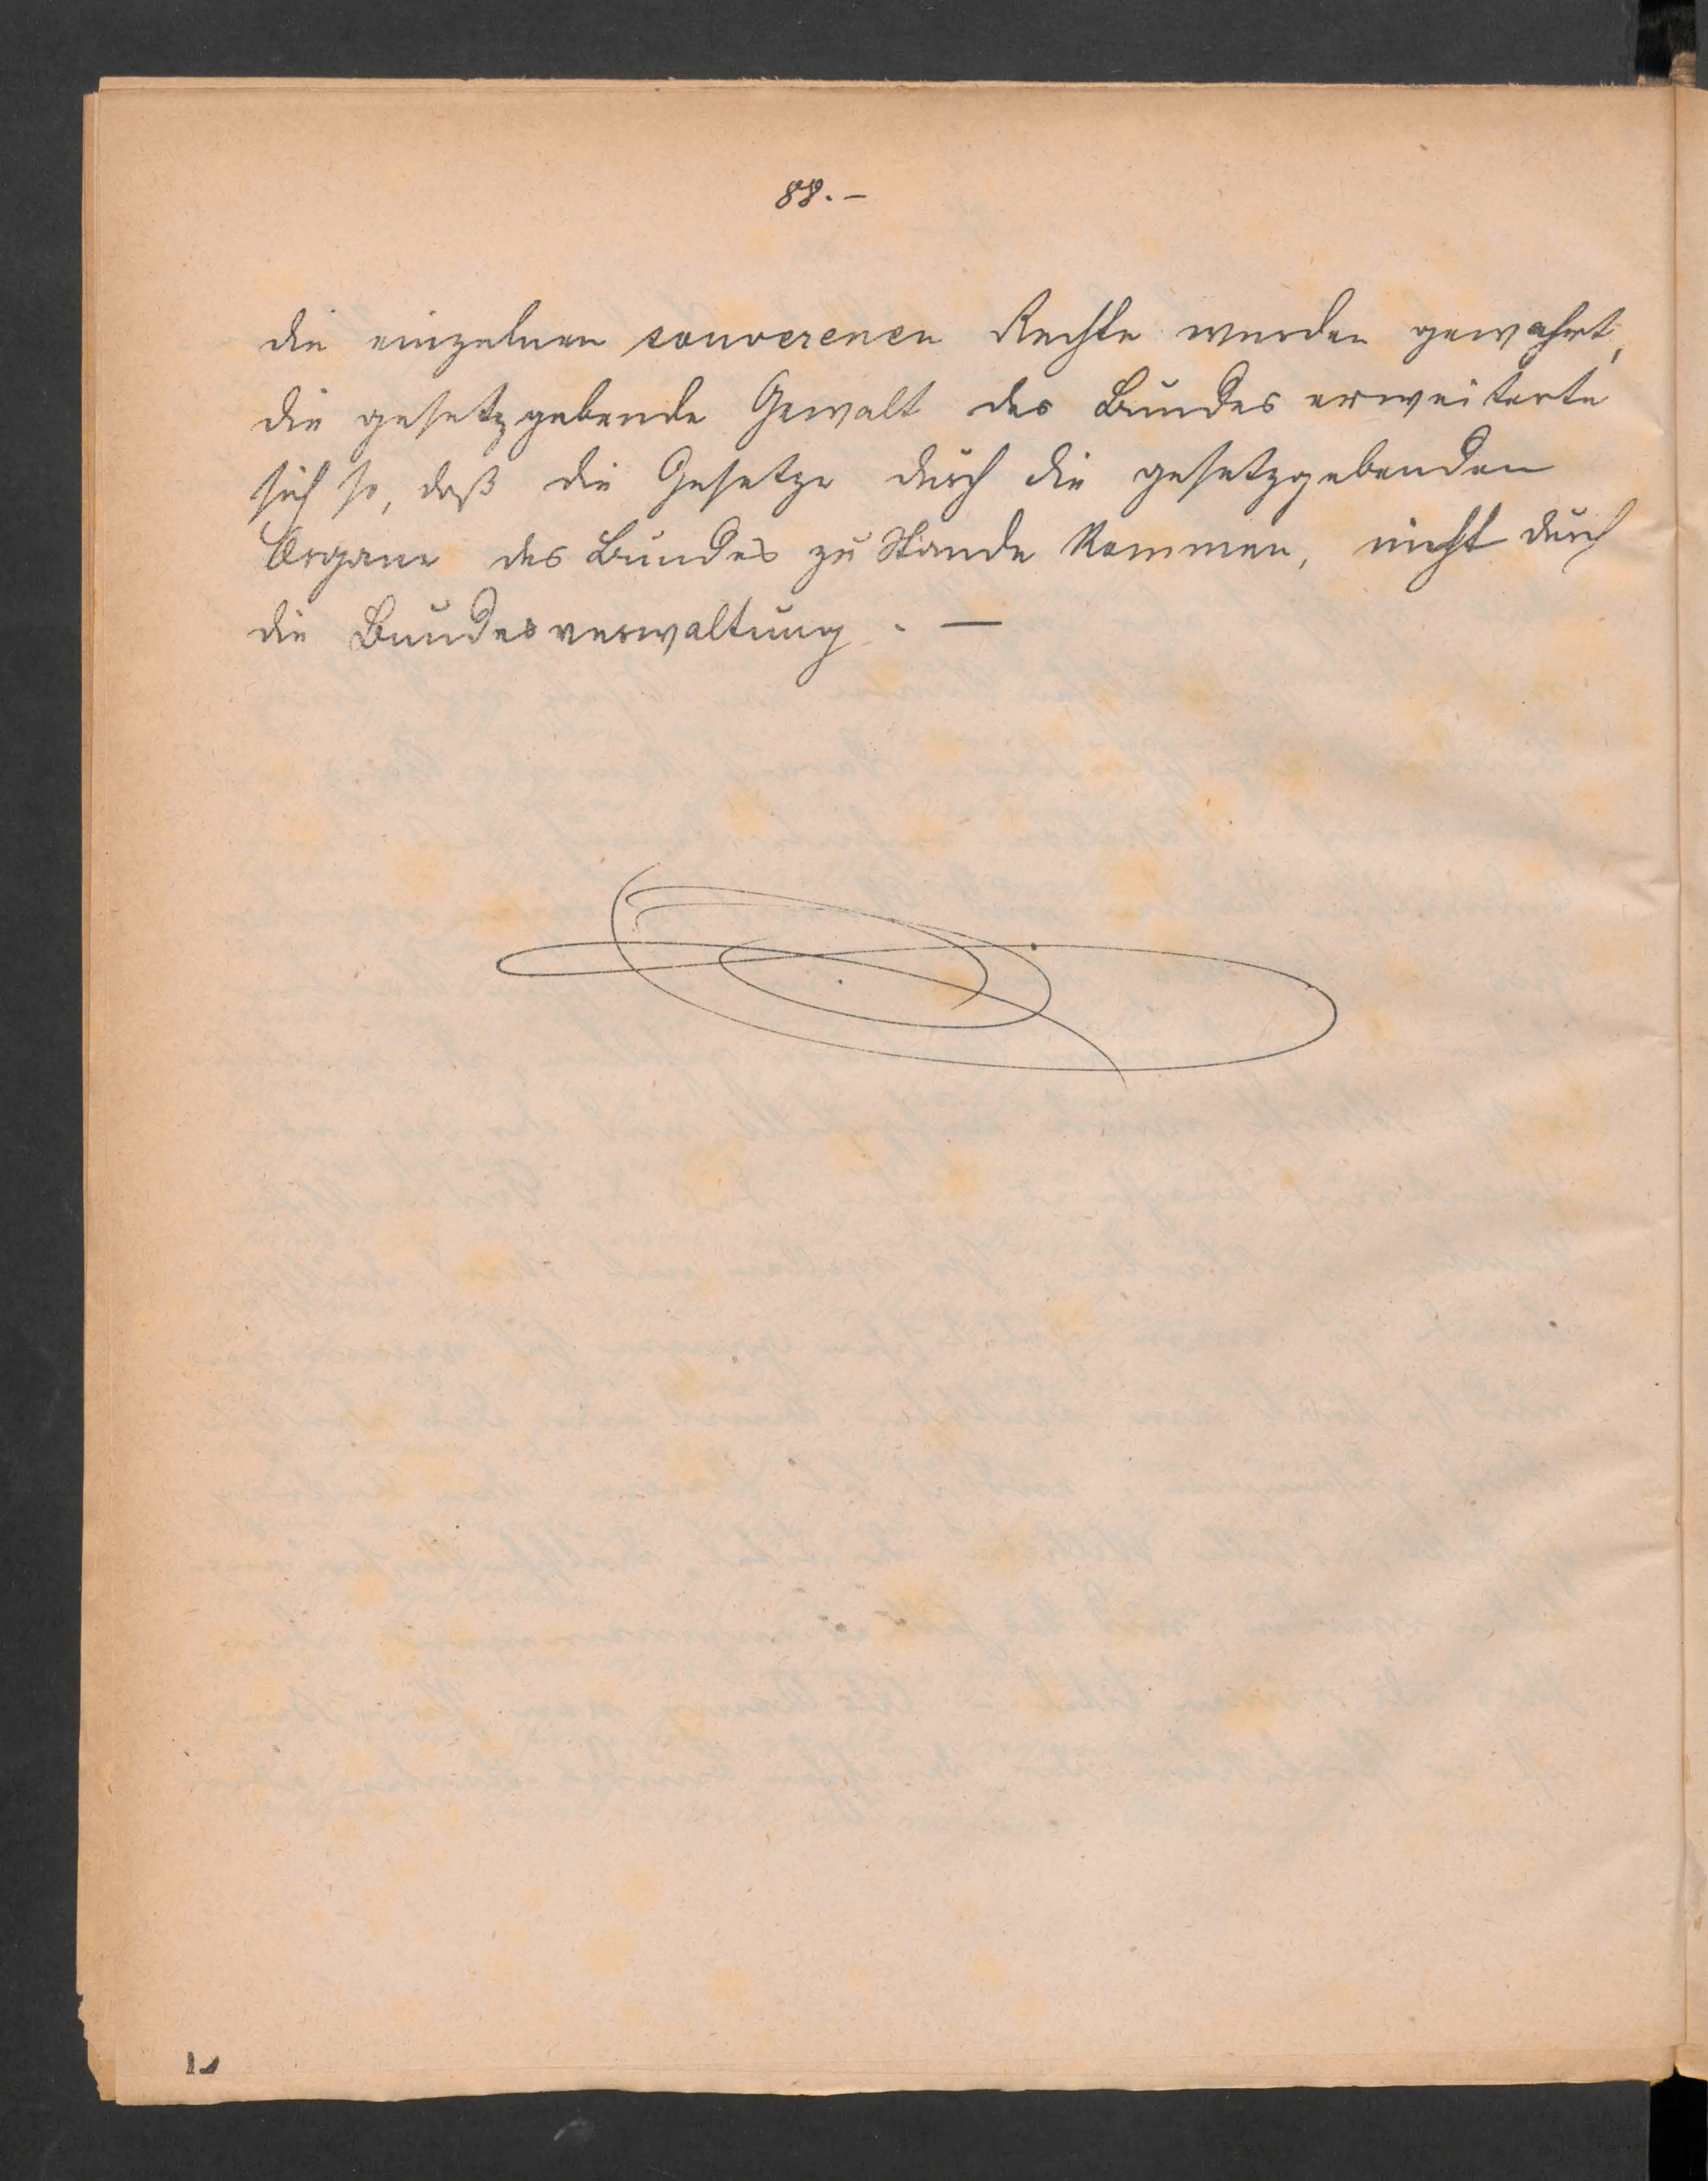 88.-
die einzelnen souverenen Rechte wurden gewahrt,
die gesetzgebende Gewalt des Bundes erweiterte
sich so, daß die Gesetze durch die gesetzgebenden
Organe des Bundes zu Stande kommen, nicht durch
die Bundesverwaltung. —